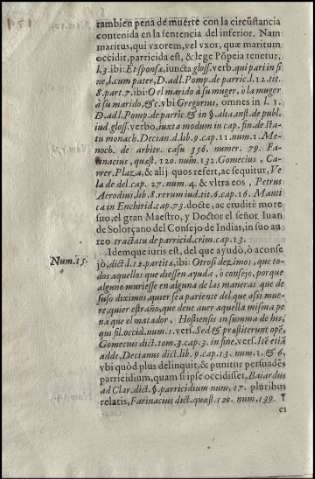 tambien pena de muerte con la circũstancia
contenida en la sentencia del inferior. Nam
maritus, qui vxorem, vel vxor, quæ maritum
occidit, parricida est, & lege Põpeia tenetur,
l.3. ibi: Et sponsa, iuncta gloss. verb. qui pari in fi
ne l. cum pater, D. ad l. Pomp. de parric. l. 12. tit.
8. part. 7. ibi: O el marido à su muger, ò la muger
à su marido, &c. vbi Gregorius, omnes in l. 3.
D. ad l. Pomp. de parric. & in §. alia. inst. de publ.
iud. gloss. verbo, iuxta modum in cap. fin. de sta-
tu monach. Decian. d. lib. 9. cap. 11. num. 1. Me-
noch. de arbitr. casu 356. numer. 79. Fa-
rinacius, quæst. 120. num. 132. Gomecius, Ca-
rrer, Plaza, & alij quos refert, ac sequitur, Ve-
la de del. cap. 27. num. 4. & vltra eos, Petrus
Aerodius, lib. 8. rerum iud. tit. 6. cap. 16. Manti
ca in Enchirid. cap. 73. docte, ac erudite more
suo, el gran Maestro, y Doctor el señor Iuan
de Solorçano del Consejo de Indias, in suo au
reo tractatu de parricid. crim. cap. 13.
Num. 15. Idemque iuris est, del que ayudò, ò aconse
jò, dict. l. 12. partitæ, ibi: Otrosi dezimos, que to-
dos aquellos que diessen ayuda, ò consejo, porque
alguno muriesse en alguna de las maneras que de
suso diximos, quier sea pariente del que assi mue-
re, quier estraño, que deue auer aquella misma pe
na que el matador, Hostensis in summa de his,
qui fil. occid. num. 1. vers. Sed & præstiterunt opē,
Gomecius dict. tom. 3. cap. 3. in fine, vers. Itē etiã
adde, Decianus dict. lib. 9. cap. 13. num. 2. & 6.
vbi quòd plus delinquit, & punitur persuadēs
parricidium, quam si ipse occidisset, Baiardus
ad Clar. dict. §. parricidium num. 17. pluribus
relatis, Farinacius dict. quæst. 120. num. 139.
ei